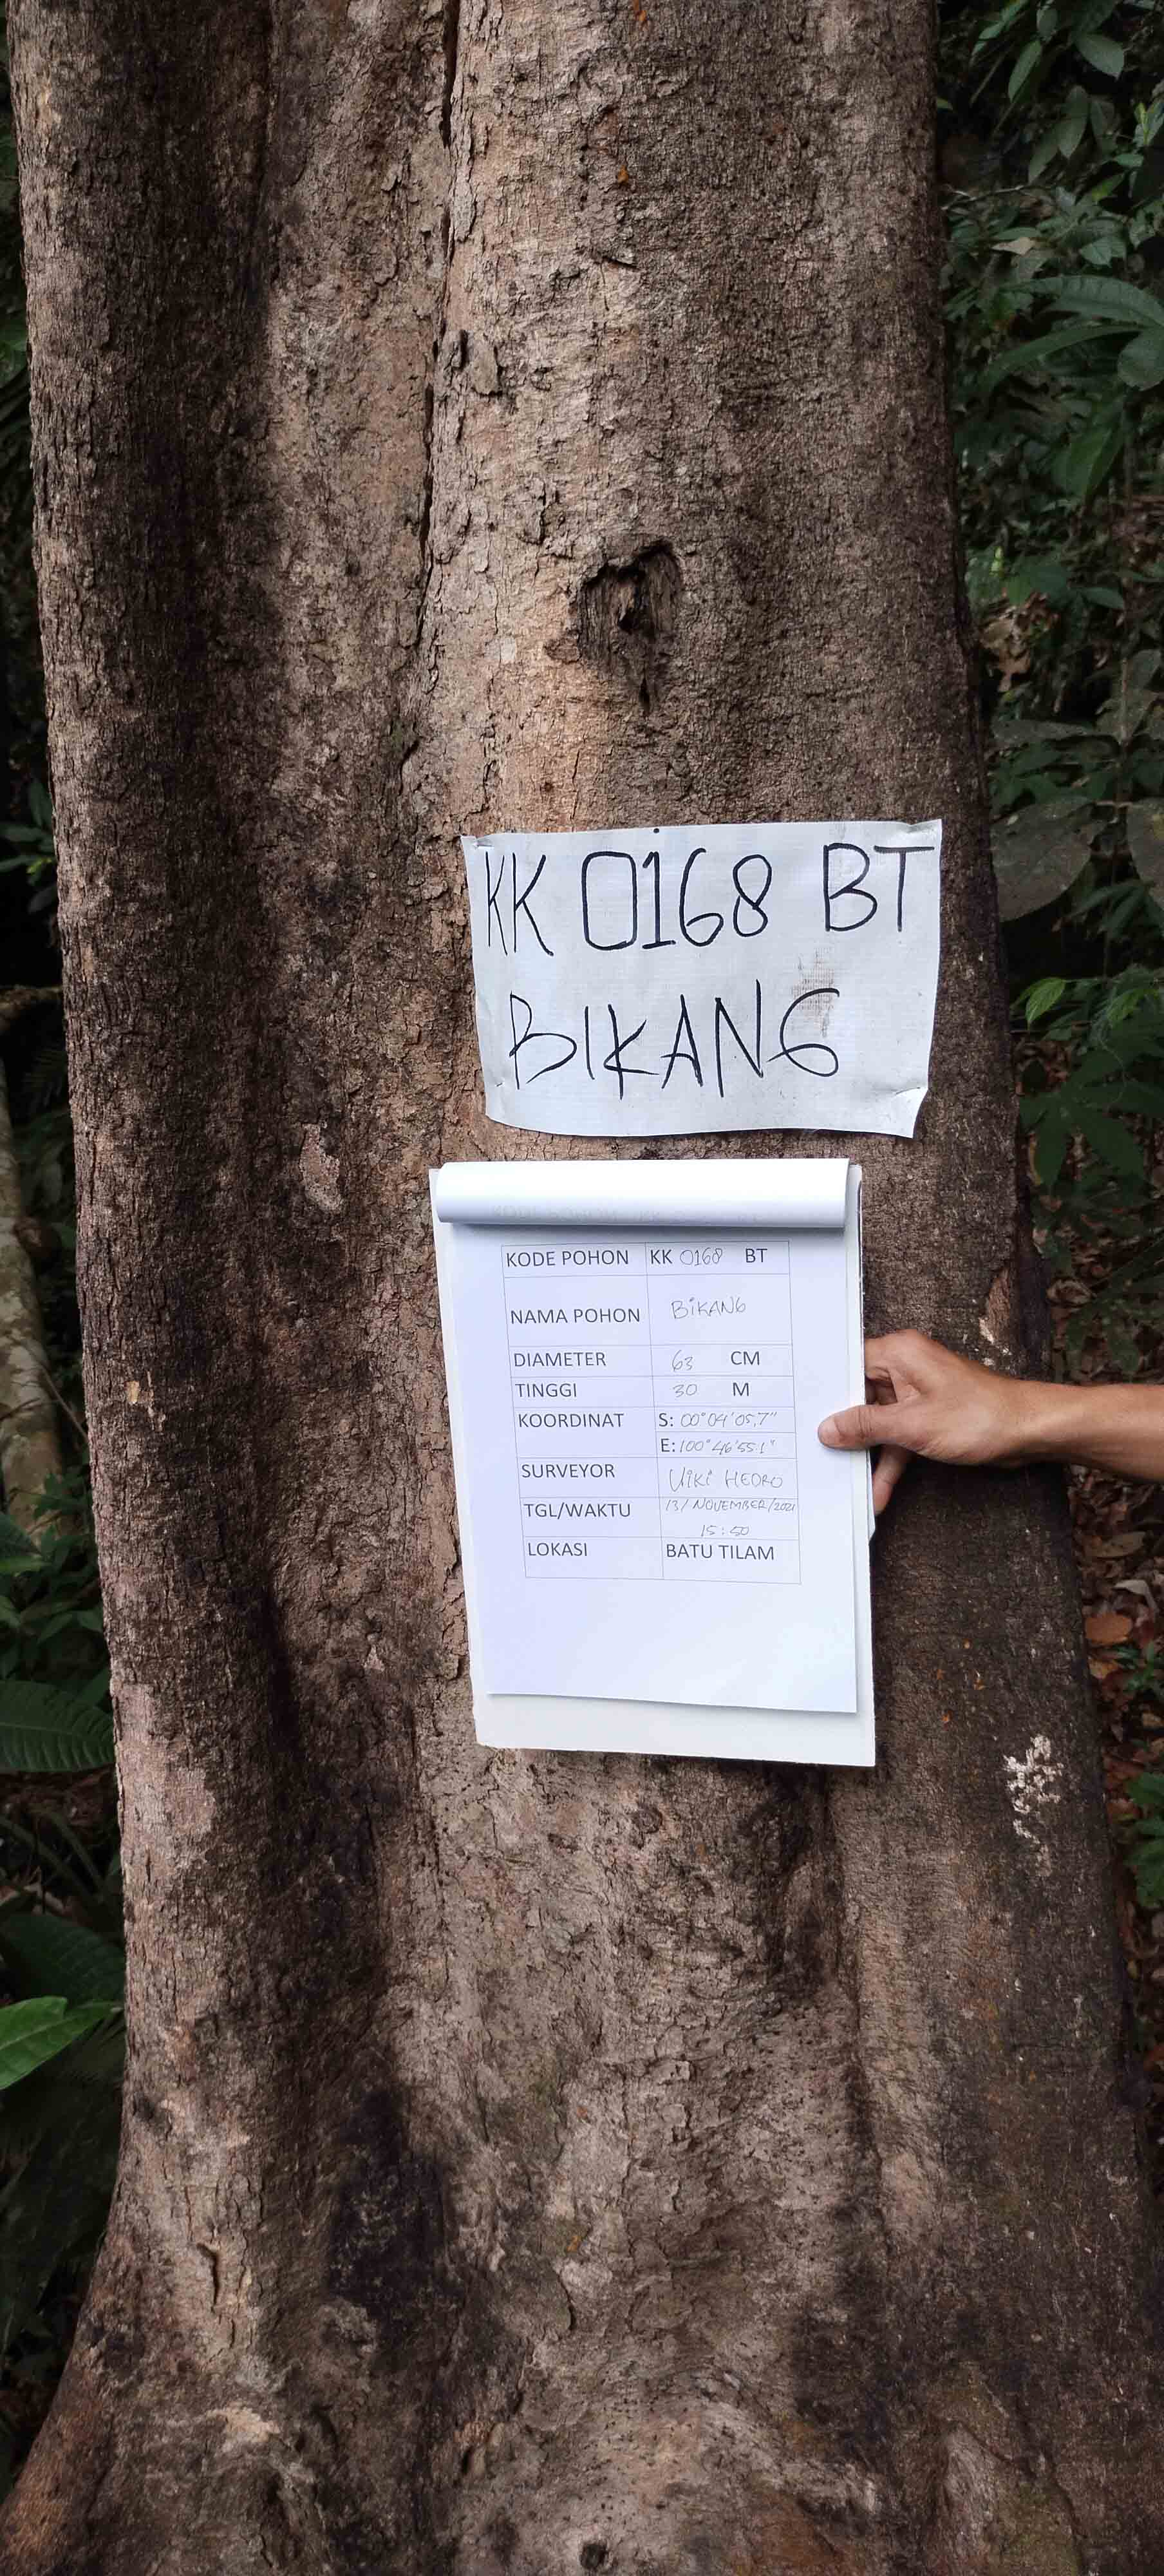 KK 0168 BT
BIKANG
KODE POHON KK 0168 BT
NAMA POHON BIKANG
DIAMETER 63 CM
TINGGI 30 M
KOORDINAT S: 00°04'05,7"
E: 100°46'55.1"
SURVEYOR VIKI HEDRO
TGL/WAKTU 13/NOVEMBER/2021
15:50
LOKASI BATU TILAM